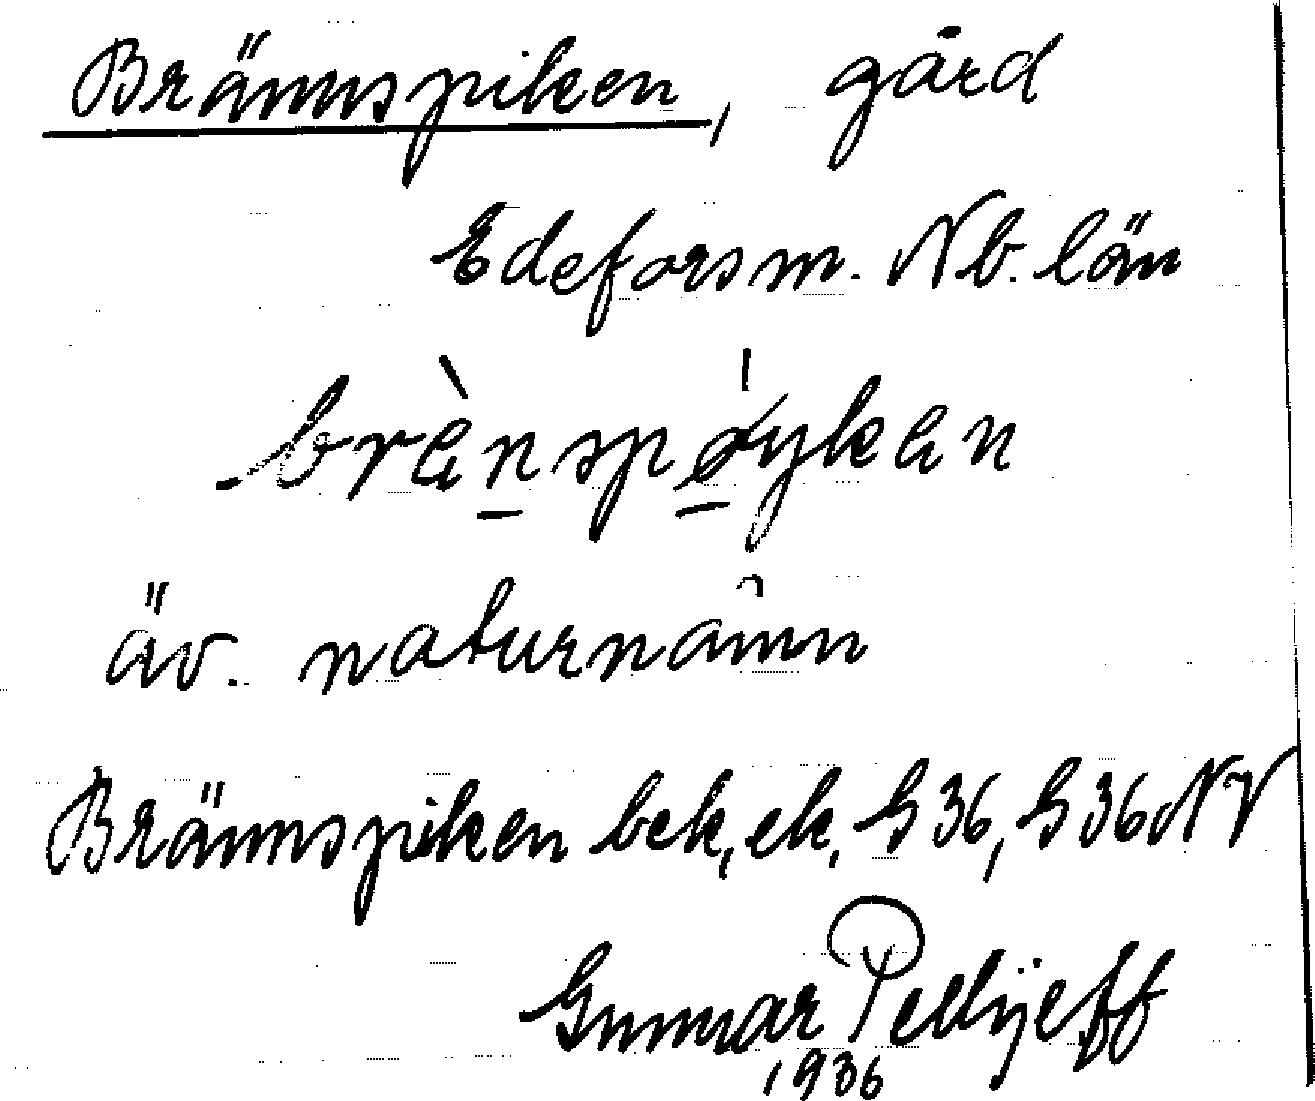 Brännspiken, gård
Edeforsm. Nb. län
brènspøyken
äv. naturnamn
Brännspiken bek, ek, G36, G36NV
Gunnar Pellijeff
1936